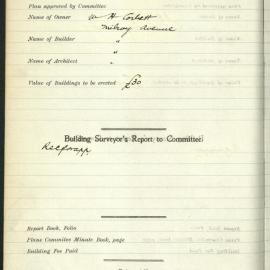 Plan approved by Committee
Name of Owner W H Corbett
Milroy Avenue
Name of Builder "
Name of Architect "
Value of Buildings to be erected £30
Building Surveyor's Report to Committee:
Report Book, Folio
Plans Commitee Minute Book, page
Building Fee Paid